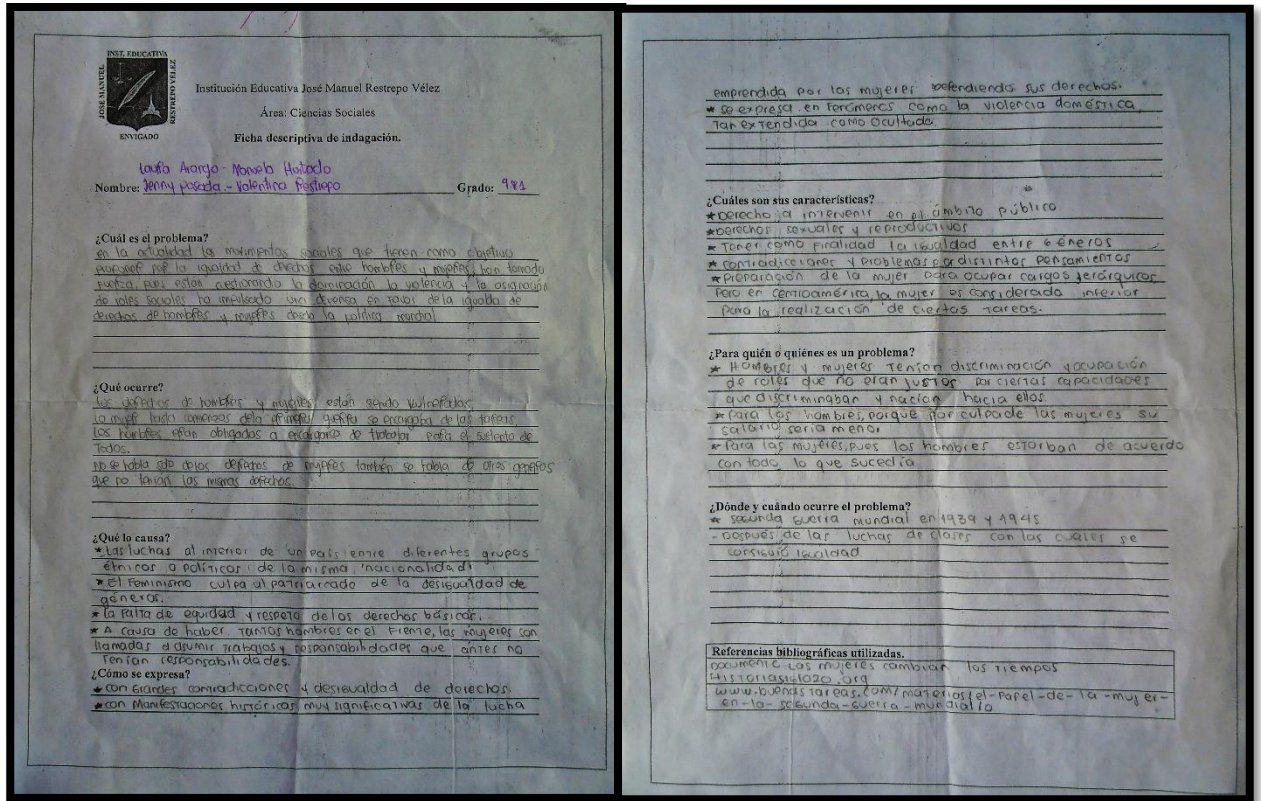 INST. EDUCATIVA
JOSE MANUEL
RESTREPO VELEZ
ENVIGADO
Institución Educativa José Manuel Restrepo Vélez
Área: Ciencias Sociales
Ficha descriptiva de indagación.
Laura Arango - Manuela Hurtado
Nombre: Jenny posada - Valentina Restrepo Grado: 9°1
¿Cuál es el problema?
en la actualidad los movimientos sociales que tienen como objetivo
propones por la igualdad de derechos entre hombres y mujeres, han tomado
fuerza, pues estan cuestionando la dominación la violencia y la asignación
de roles sociales ha impulsado una en favor de la igualda de
derechos de hombres y mujeres desde la política mundial
¿Qué ocurre?
los derechos de hombres y mujeres están siendo vulnerados,
la mujer hasta comienzos dela primera guerra se encargaba de las tareas,
los hombres eran obligados a encargarse de trabajar para el sustento de
todos.
no se habla solo de los derechos de mujeres también se habla de otros generos
que no tenian los mismos derechos.
¿Qué lo causa?
* Las luchas al interior de un país entre diferentes grupos
étnicos o políticos de la misma nacionalidad.
* El Feminismo culpa al patriarcado de la desigualdad de
géneros.
* la Falta de equidad y respeto de los derechos básicos.
* A causa de haber tantos hombres en el Frente, las mujeres son
llamadas a asumir trabajos y responsabilidades que antes no
Tenían responsabilidades.
¿Cómo se expresa?
* con Grandes contradicciones y desigualdad de derechos.
* con Manifestaciones históricas muy significativas de la lucha
emprendida por las mujeres defendiendo sus derechos.
* se expresa en Fenómenos como la violencia doméstica,
Tan extendida como ocultada.
¿Cuáles son sus características?
* Derecho a intervenir en el ámbito público
* Derechos sexuales y reproductivos
* Tener como Finalidad la igualdad entre Géneros
* contradicciones y problemas por distintos pensamientos
* preparación de la mujer para ocupar cargos jerárquicos
Pero en centroamérica, la mujer es considerada inferior
para la realización de ciertas tareas.
¿Para quién o quiénes es un problema?
* HOmbres y mujeres Tenían discriminación y ocupación
de roles que no eran justos por ciertas capacidades
que discriminaban y nacían hacia ellos.
* para los hombres, porque por culpa de las mujeres su
salario seria menor
* Para las mujeres, pues los hombres estorban de acuerdo
con todo lo que sucedía
¿Dónde y cuándo ocurre el problema?
* segunda Guerra mundial en 1939 y 1945
- Después de las luchas de clases con las cuales se
consiguió igualdad
Referencias bibliográficas utilizadas.
Documento Las mujeres cambian los tiempos
Historiasiglo20.org
www.buenastareas.com/materias/el-papel-de-la-mujer-
en-la-segunda-guerra-mundial/0